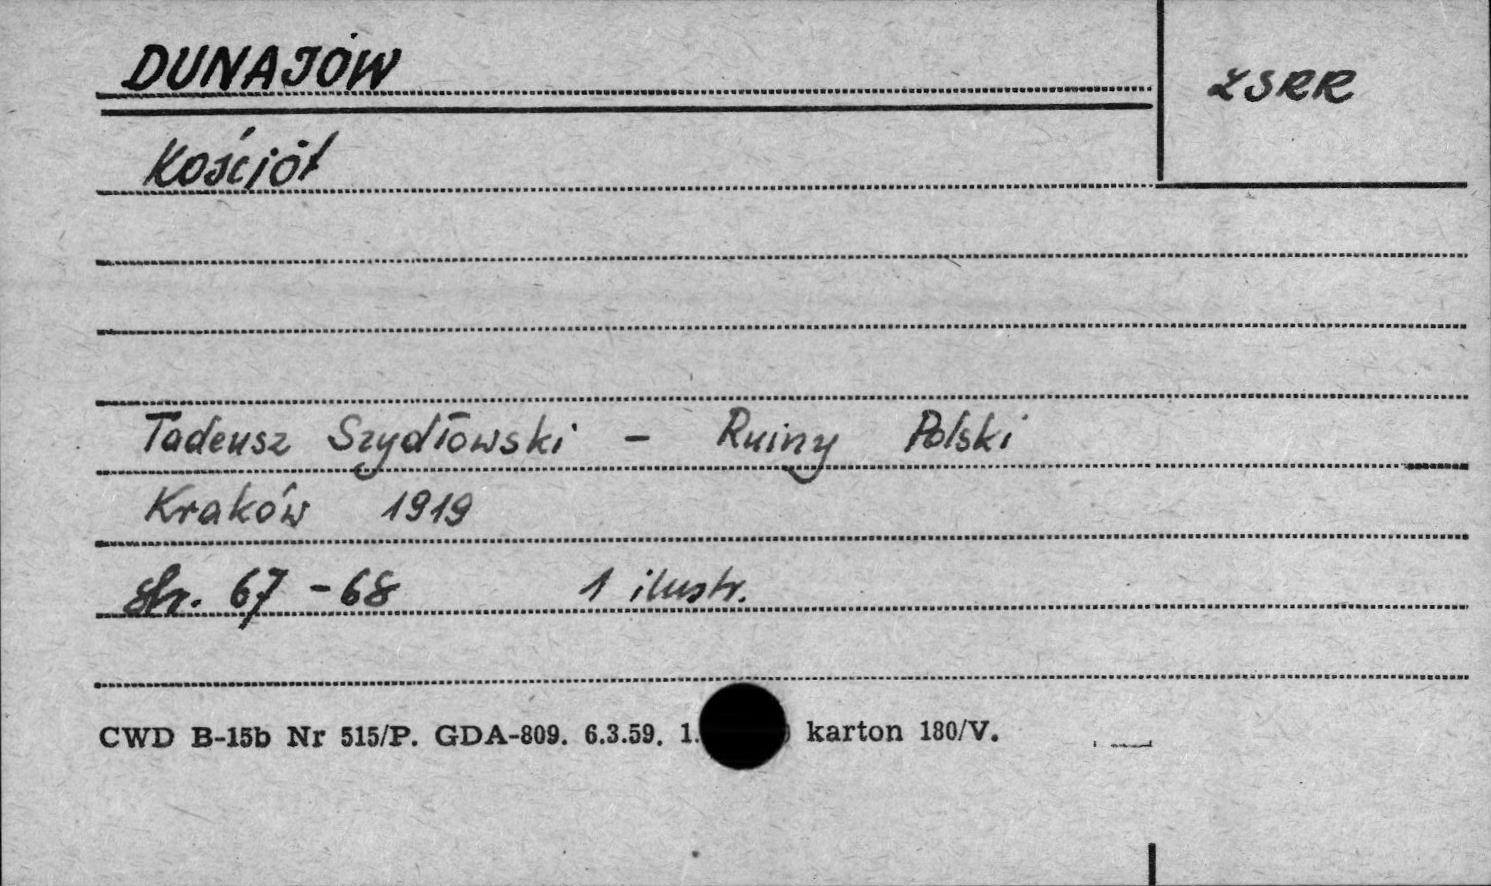 DUNAJÓW
ZSRR
Kościół
Tadeusz Szydłowski - Ruiny Polski
Kraków 1919
str. 67-68 1 ilustr.
CWD B-15b Nr 515/P. GDA-809. 6.3.59. 1. karton 180/V.